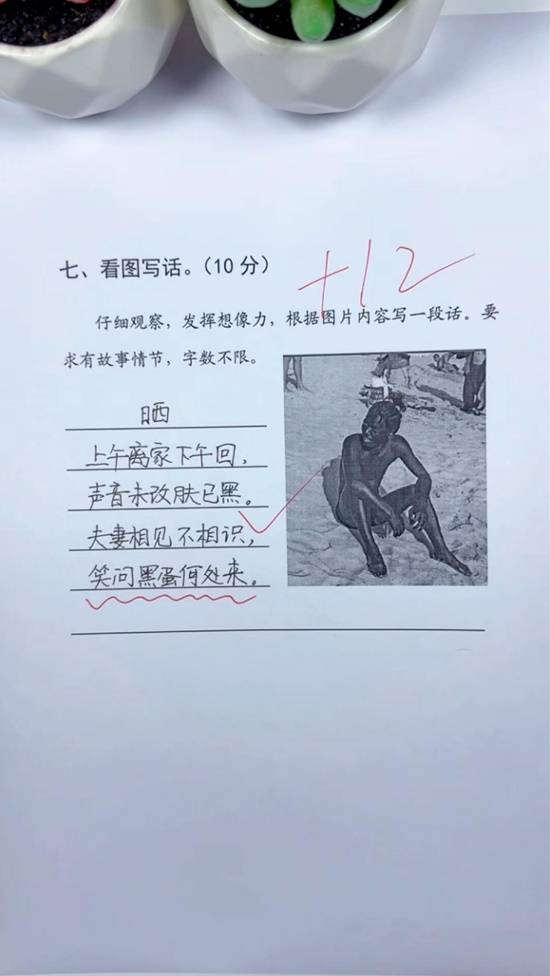 七、看图写话。(10分)
+12
仔细观察，发挥想像力，根据图片内容写一段话。要
求有故事情节，字数不限。
晒
上午离家下午回，
声音未改肤已黑。
夫妻相见不相识，
笑问黑蛋何处来。